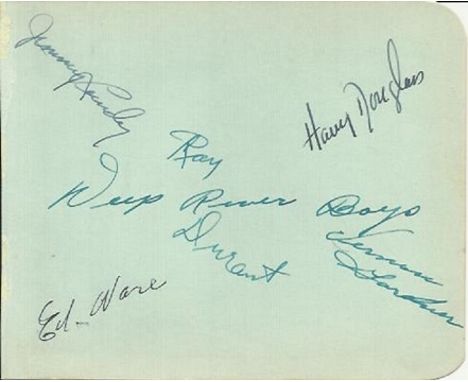 Jimmy Lundy
Harry Douglass
Ray
Deep River Boys
Durant
Vernon
Gardner
Ed. Ware